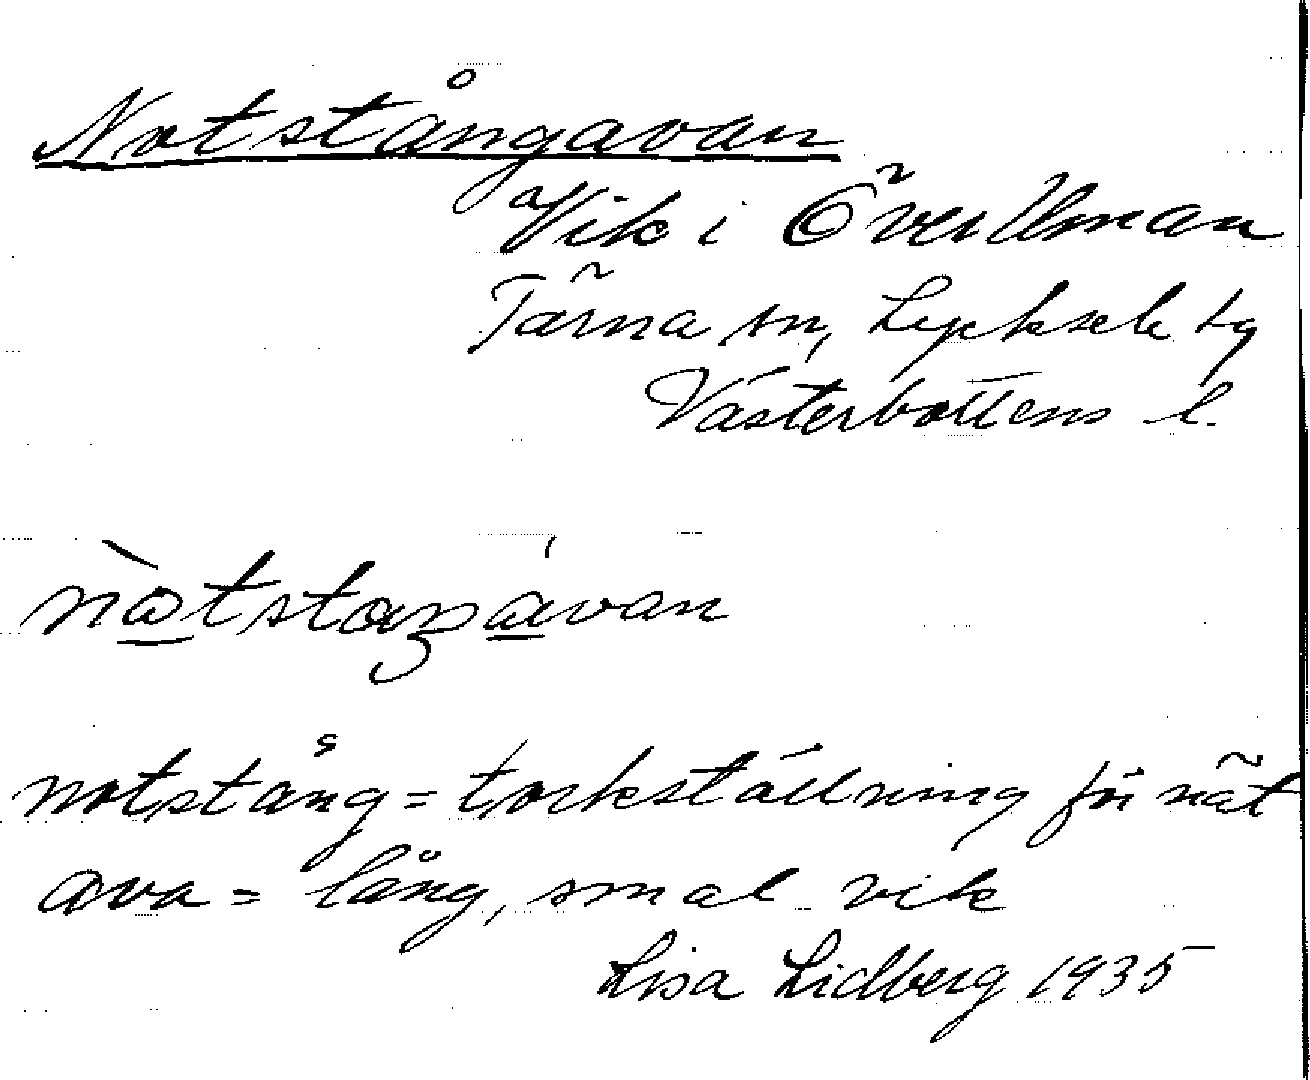 Notstångavan
Vik i ÖverUman
Tärna sn, Lycksele tg
Västerbottens l.
nòtstaŋávan
notstång = torkställning för nät
ava = lång, smal vik
Lisa Lidberg 1935